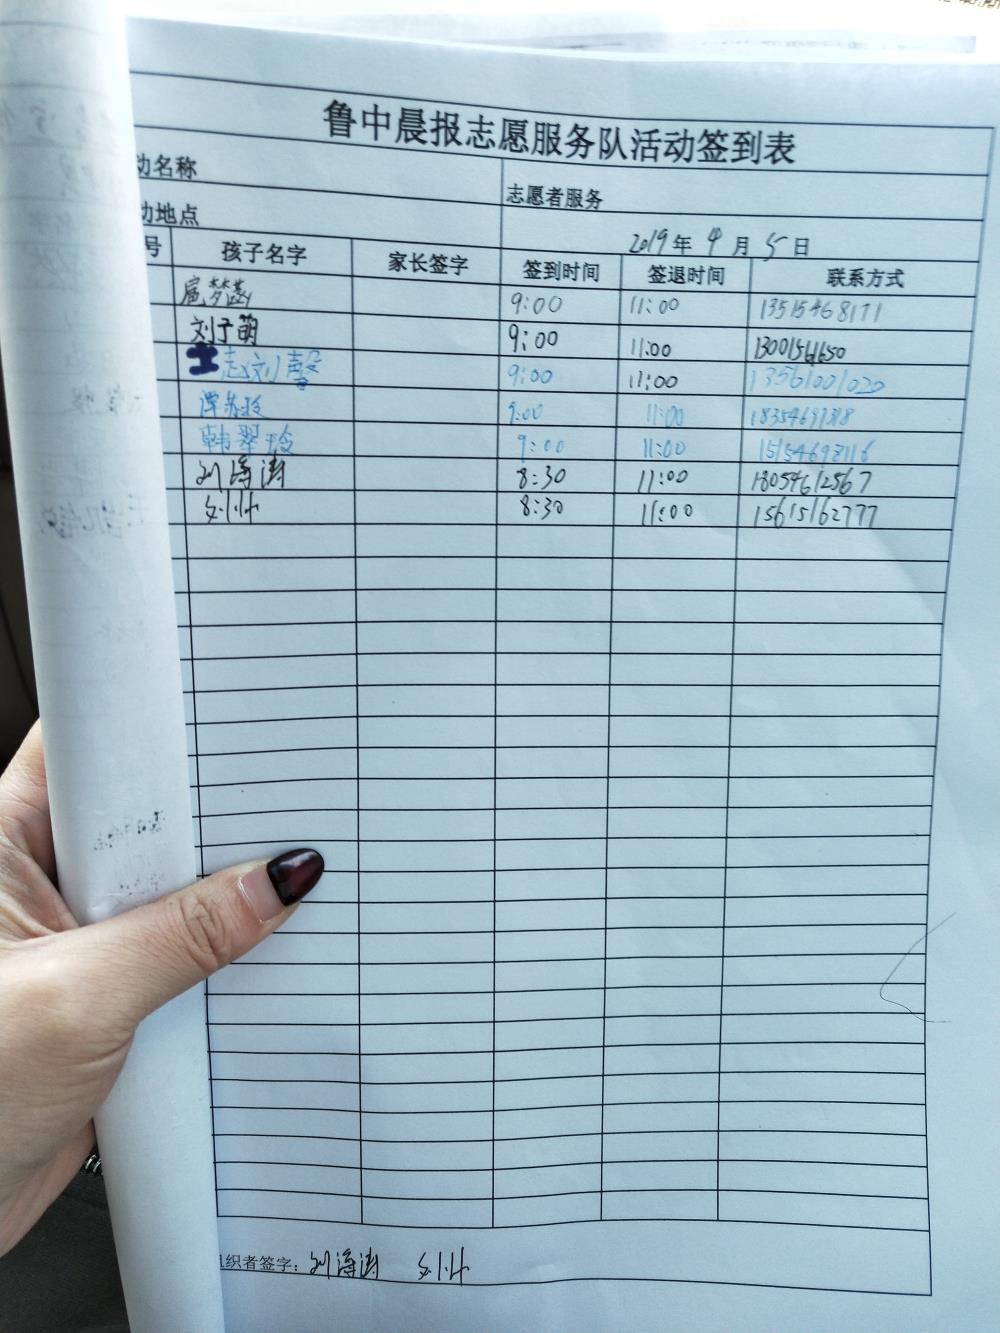 鲁中晨报志愿服务队活动签到表
动名称
志愿者服务
动地点
2019年4月5日
号 孩子名字 家长签字 签到时间 签退时间 联系方式
扈梦 9:00 11:00 13515468171
刘子萌 9:00 11:00 13001561650
刘馨 9:00 11:00 13561001020
谭苏玲 9:00 11:00
韩翠玲 9:00 11:00 15154698116
刘海涛 8:30 11:00 18054612567
8:30 11:00 15615162777
组织者签字: 刘海涛